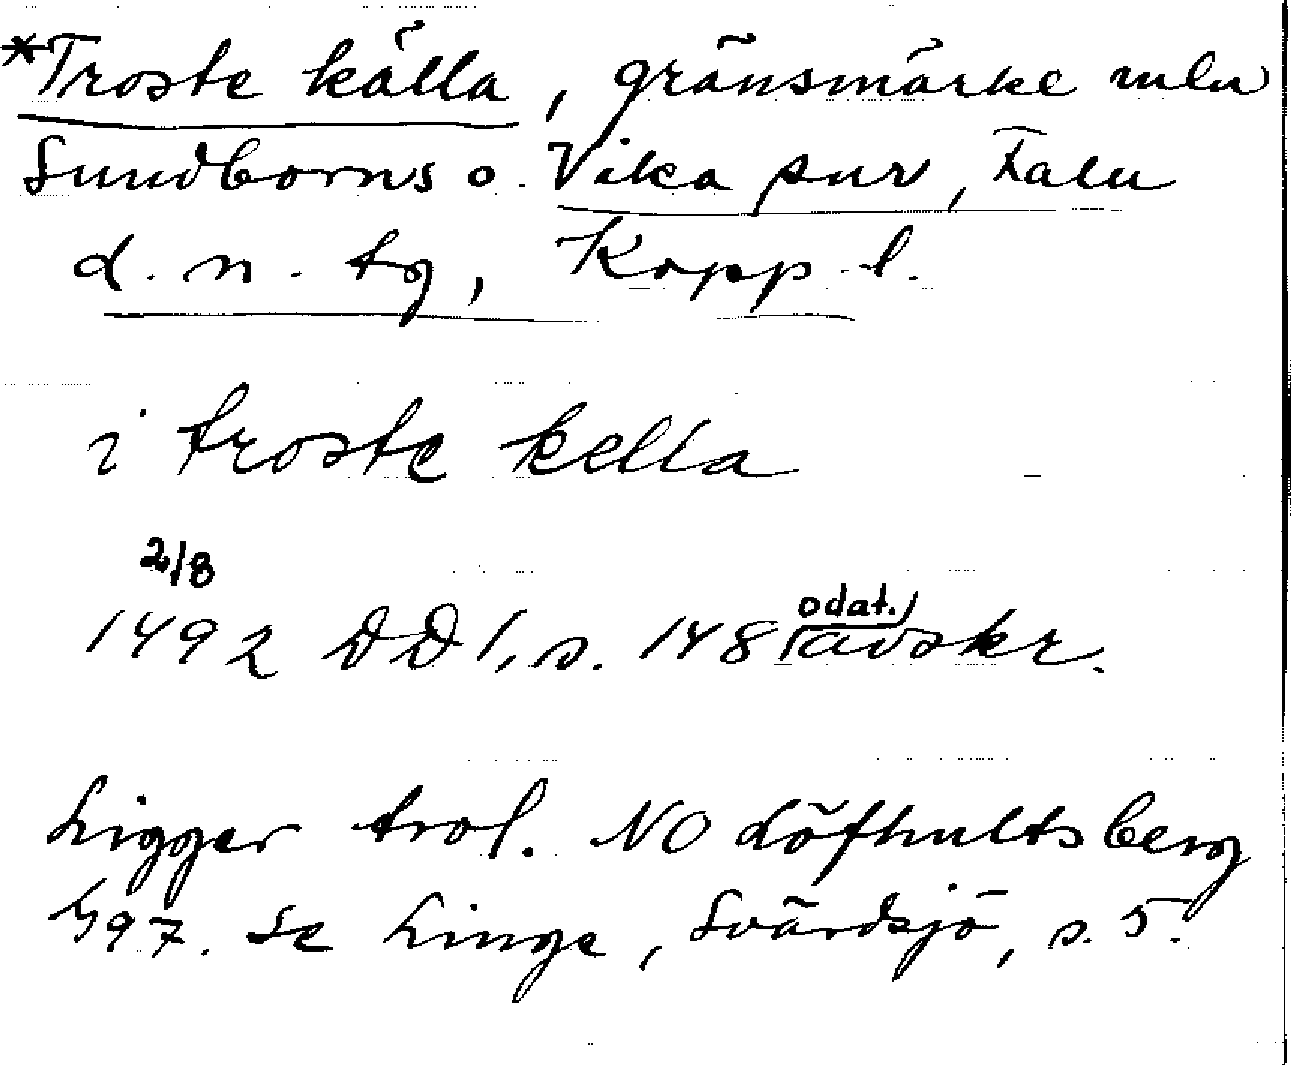 *Troste källa, gränsmärke mln
Sundborns o. Vika snr, Falu
d. n. tg, Kopp. l.
i troste kella
2/8
1492 DD 1, s. 148 (odat.) avskr.
Ligger trol. NO Löfhultsberg
497. Se Linge, Svärdsjö, s. 5.